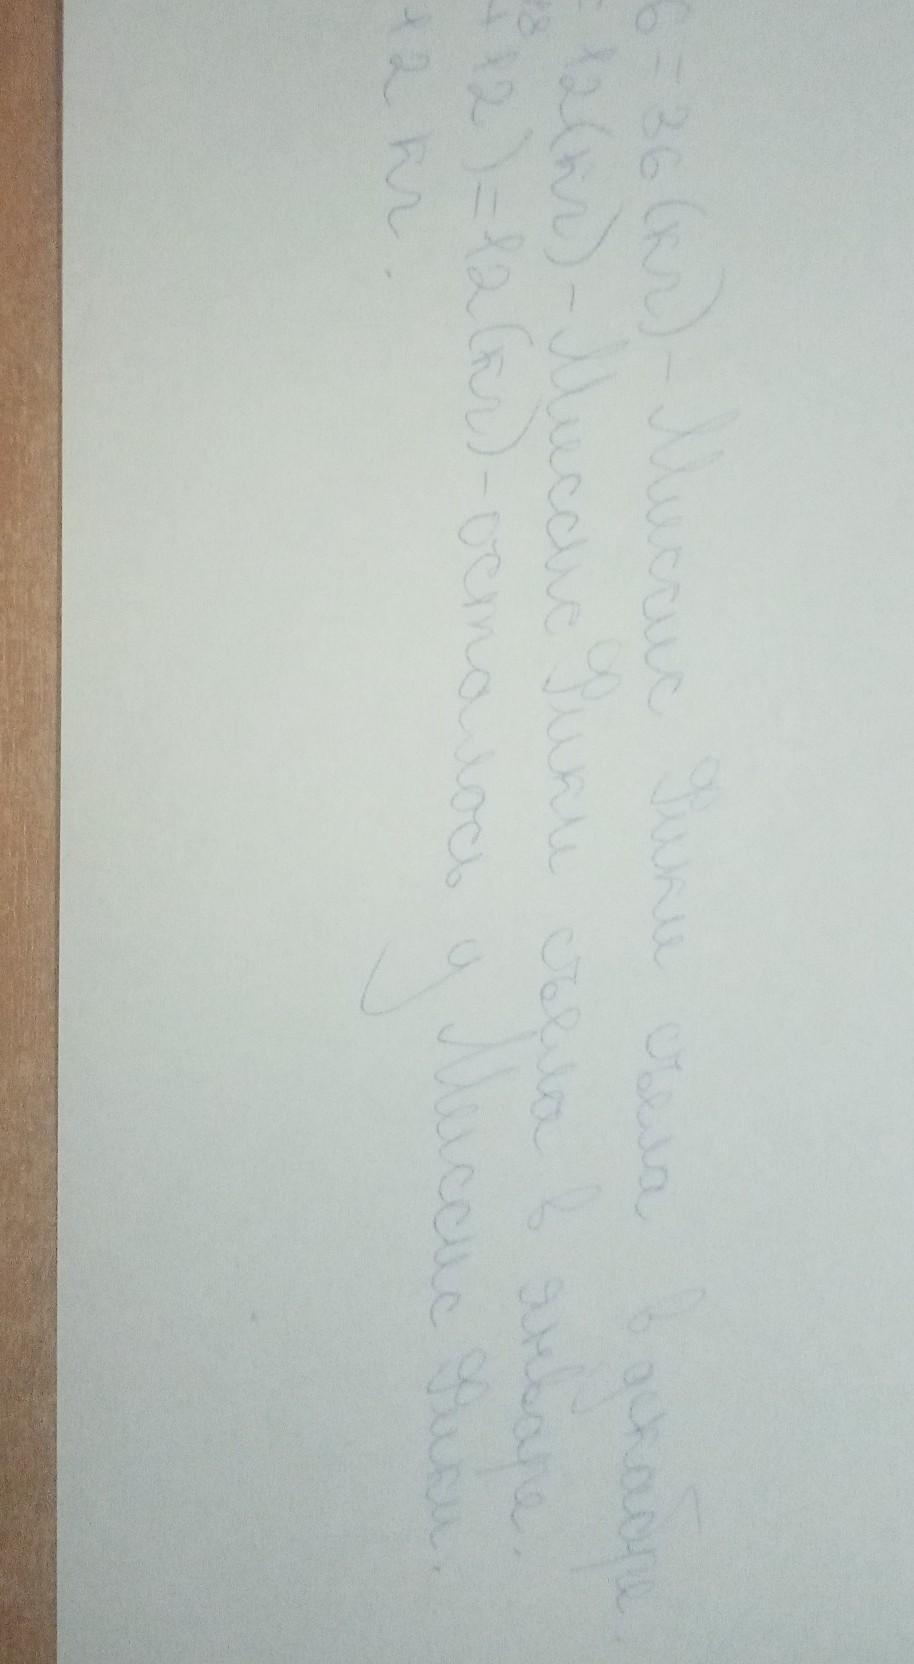 6=36(кг)-Миссис Фикли съела в декабре.
= 12(кг)-Миссис Фикли съела в январе.
48
+12)=12(кг)-осталось у Миссис Фикли.
12 кг.